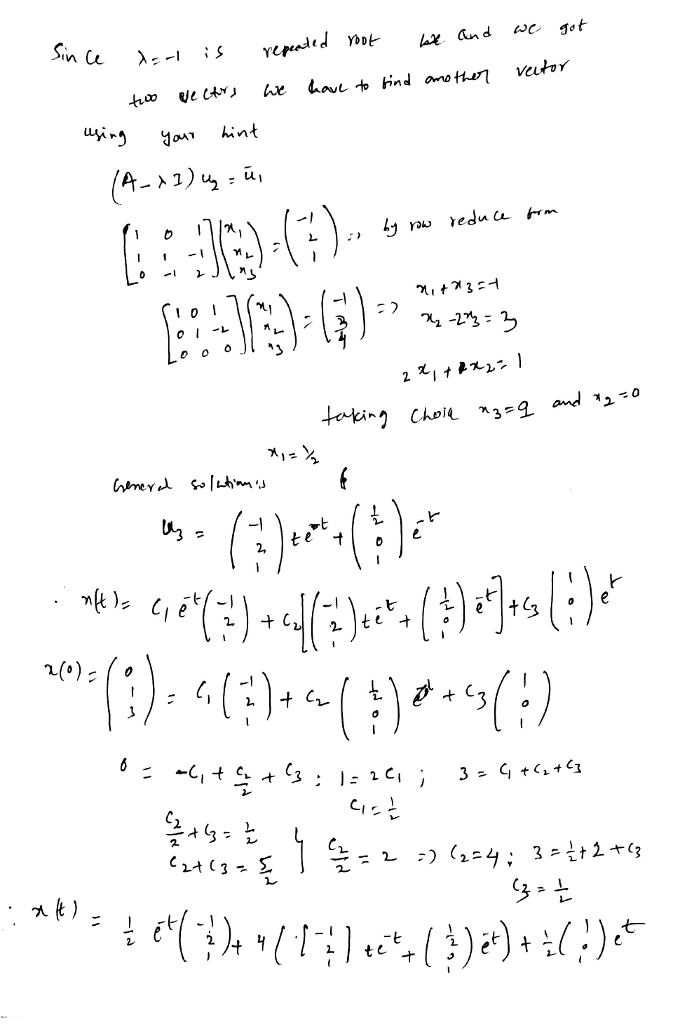 Since λ=-1 is repeated root and we got
two vectors we have to find another vector
using your hint
(A-λI) u₂ = ū₁
[1 0 1; 1 1 -1; 0 -1 2] (x₁; x₂; x₃) = (-1; 2; 1) => by row reduce form
[1 0 1; 0 1 -2; 0 0 0] (x₁; x₂; x₃) = (-1; 3; 4) => x₁+x₃=-1
x₂-2x₃=3
2x₁+x₂=1
taking choice x₃=1 and x₂=0
x₁=½
General solution is
u₃ = (-1; 2; 1) te^-t + (½; 0; 1) e^-t
. x(t)= C₁e^-t (-1; 2; 1) + C₂[(-1; 2; 1) te^-t + (½; 0; 1) e^-t] + C₃ (1; 0; 1) e^t
x(0)= (0; 1; 3) = C₁ (-1; 2; 1) + C₂ (½; 0; 1) + C₃ (1; 0; 1)
0 = -C₁ + C₂/2 + C₃ ; 1=2C₁ ; 3 = C₁+C₂+C₃
C₁=½
C₂/2+C₃=½
C₂+C₃=5/2 } C₂/2=2 => C₂=4; 3=½+2+C₃
C₃=½
∴ x(t) = ½ e^-t (-1; 2; 1) + 4([-1; 2; 1] te^-t + (½; 0; 1) e^-t) + ½ (1; 0; 1) e^t